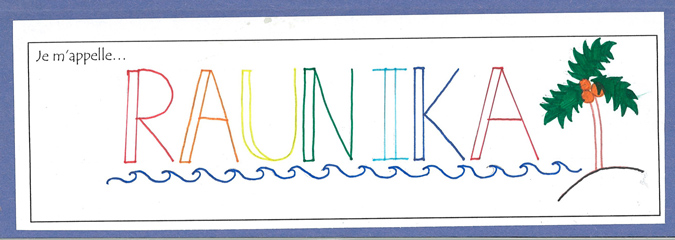 Je m'appelle...
RAUNIKA